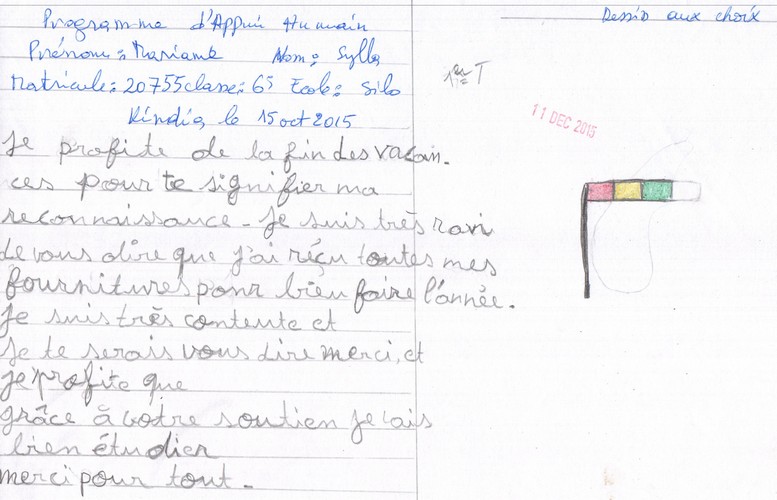 Programme d'Appui Humain
Prénom: Mariame Nom: Sylla
Matricule: 20755 classe: 6e Ecole: Silo
Kindia, le 15 oct 2015
Je profite de la fin des vacan-
ces pour te signifier ma
reconnaissance. Je suis très ravi
de vous dire que j'ai riçu toutes mes
fournitures ponr bien faire l'année.
Je suis très contente et
Je te serais vous dire merci, et
je profite que
grâce à votre soutien je vais
bien étudier
merci pour tout.
Dessin aux choix
1er T
11 DEC 2015